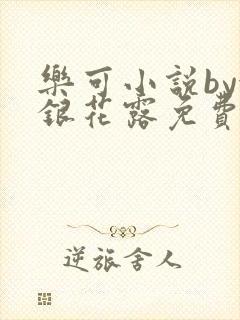 樂可小說by
銀花露免費
逆旅舍人